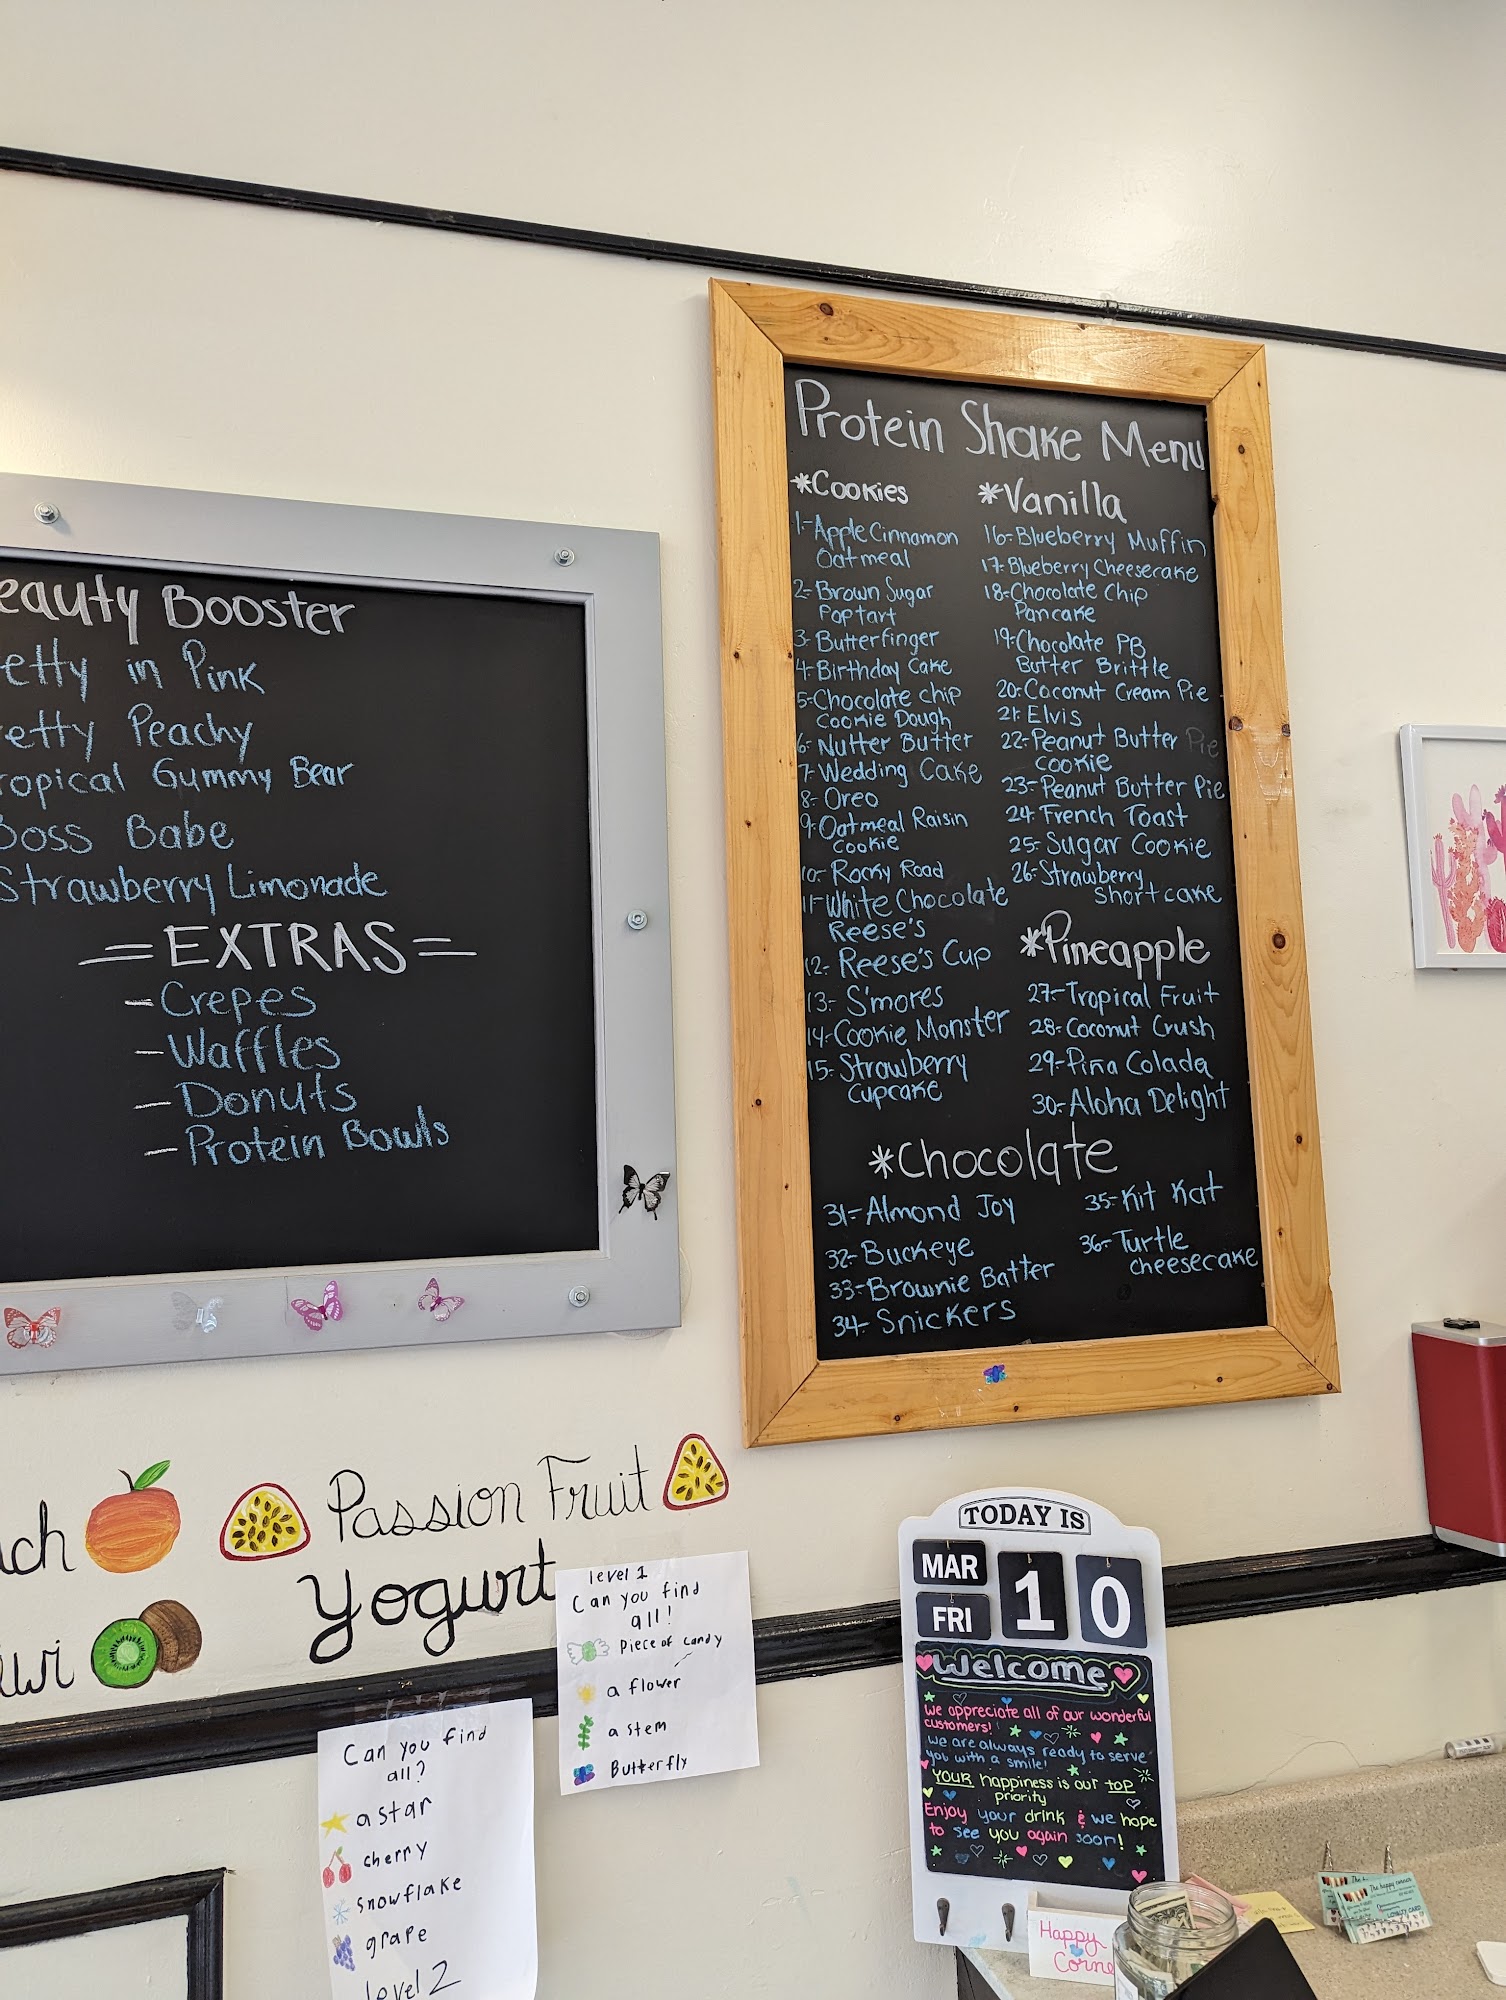 Beauty Booster
Pretty in Pink
Pretty Peachy
Tropical Gummy Bear
Boss Babe
Strawberry Limonade
=EXTRAS=
-Crepes
-Waffles
-Donuts
-Protein Bowls
Protein Shake Menu
*Cookies
1-Apple Cinnamon
Oatmeal
2-Brown Sugar
Poptart
3-Butterfinger
4-Birthday Cake
5-Chocolate Chip
Cookie Dough
6-Nutter Butter
7-Wedding Cake
8-Oreo
9-Oatmeal Raisin
Cookie
10-Rocky Road
11-White Chocolate
Reese's
12-Reese's Cup
13-S'mores
14-Cookie Monster
15-Strawberry
Cupcake
*Vanilla
16-Blueberry Muffin
17-Blueberry Cheesecake
18-Chocolate Chip
Pancake
19-Chocolate PB
Butter Brittle
20-Coconut Cream Pie
21-Elvis
22-Peanut Butter Pie
cookie
23-Peanut Butter Pie
24-French Toast
25-Sugar Cookie
26-Strawberry
Shortcake
*Pineapple
27-Tropical Fruit
28-Coconut Crush
29-Piña Colada
30-Aloha Delight
*Chocolate
31-Almond Joy
32-Buckeye
33-Brownie Batter
34-Snickers
35-Kit Kat
36-Turtle
cheesecake
Passion Fruit
Yogurt
level 1
Can you find
all!
Piece of candy
a flower
a stem
Butterfly
Can you find
all?
a star
cherry
snowflake
grape
level 2
TODAY IS
MAR
FRI
10
Welcome
We appreciate all of our wonderful
customers!
we are always ready to serve
you with a smile!
YOUR happiness is our TOP
priority
Enjoy your drink & we hope
to see you again soon!
Happy
Corne
The happy corner
LOYALTY CARD